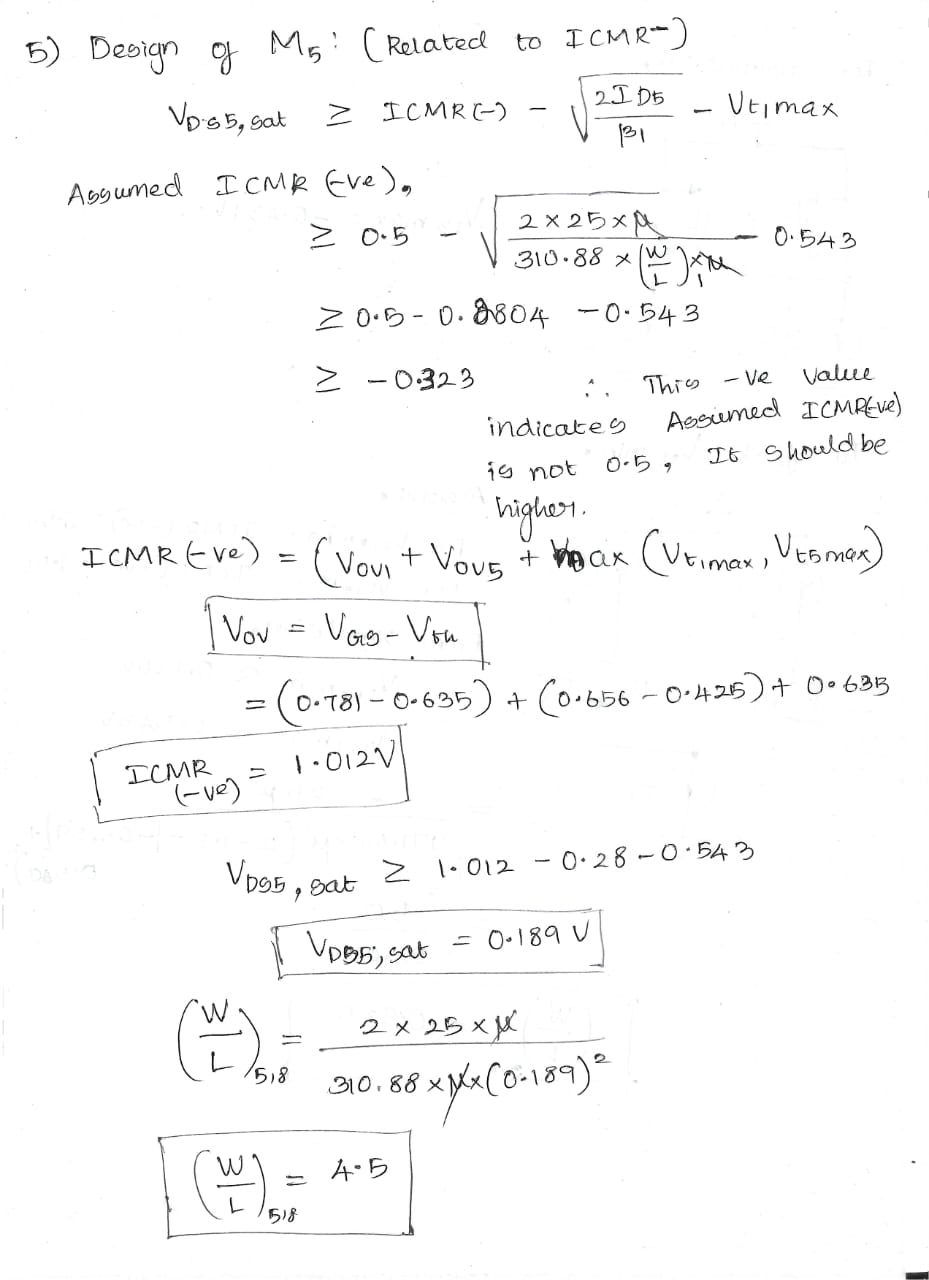 5) Design of M5: (Related to ICMR-)
VDS5,sat ≥ ICMR(-) - √(2ID5 / β1) - Vt1max
Assumed ICMR (-ve),
≥ 0.5 - √(2 × 25 × μ / 310.88 × (W/L)1 × μ) - 0.543
≥ 0.5 - 0.2804 - 0.543
≥ -0.323 ∴ This -ve value
indicates Assumed ICMR(-ve)
is not 0.5, It should be
higher.
ICMR (-ve) = (Vov1 + Vov5 + max (Vt1max, Vt5max)
Vov = VGS - Vth
= (0.781 - 0.635) + (0.656 - 0.425) + 0.635
ICMR (-ve) = 1.012V
VDS5,sat ≥ 1.012 - 0.28 - 0.543
VDS5,sat = 0.189 V
(W/L)5,8 = 2 × 25 × μ / 310.88 × μ × (0.189)²
(W/L)5,8 = 4.5